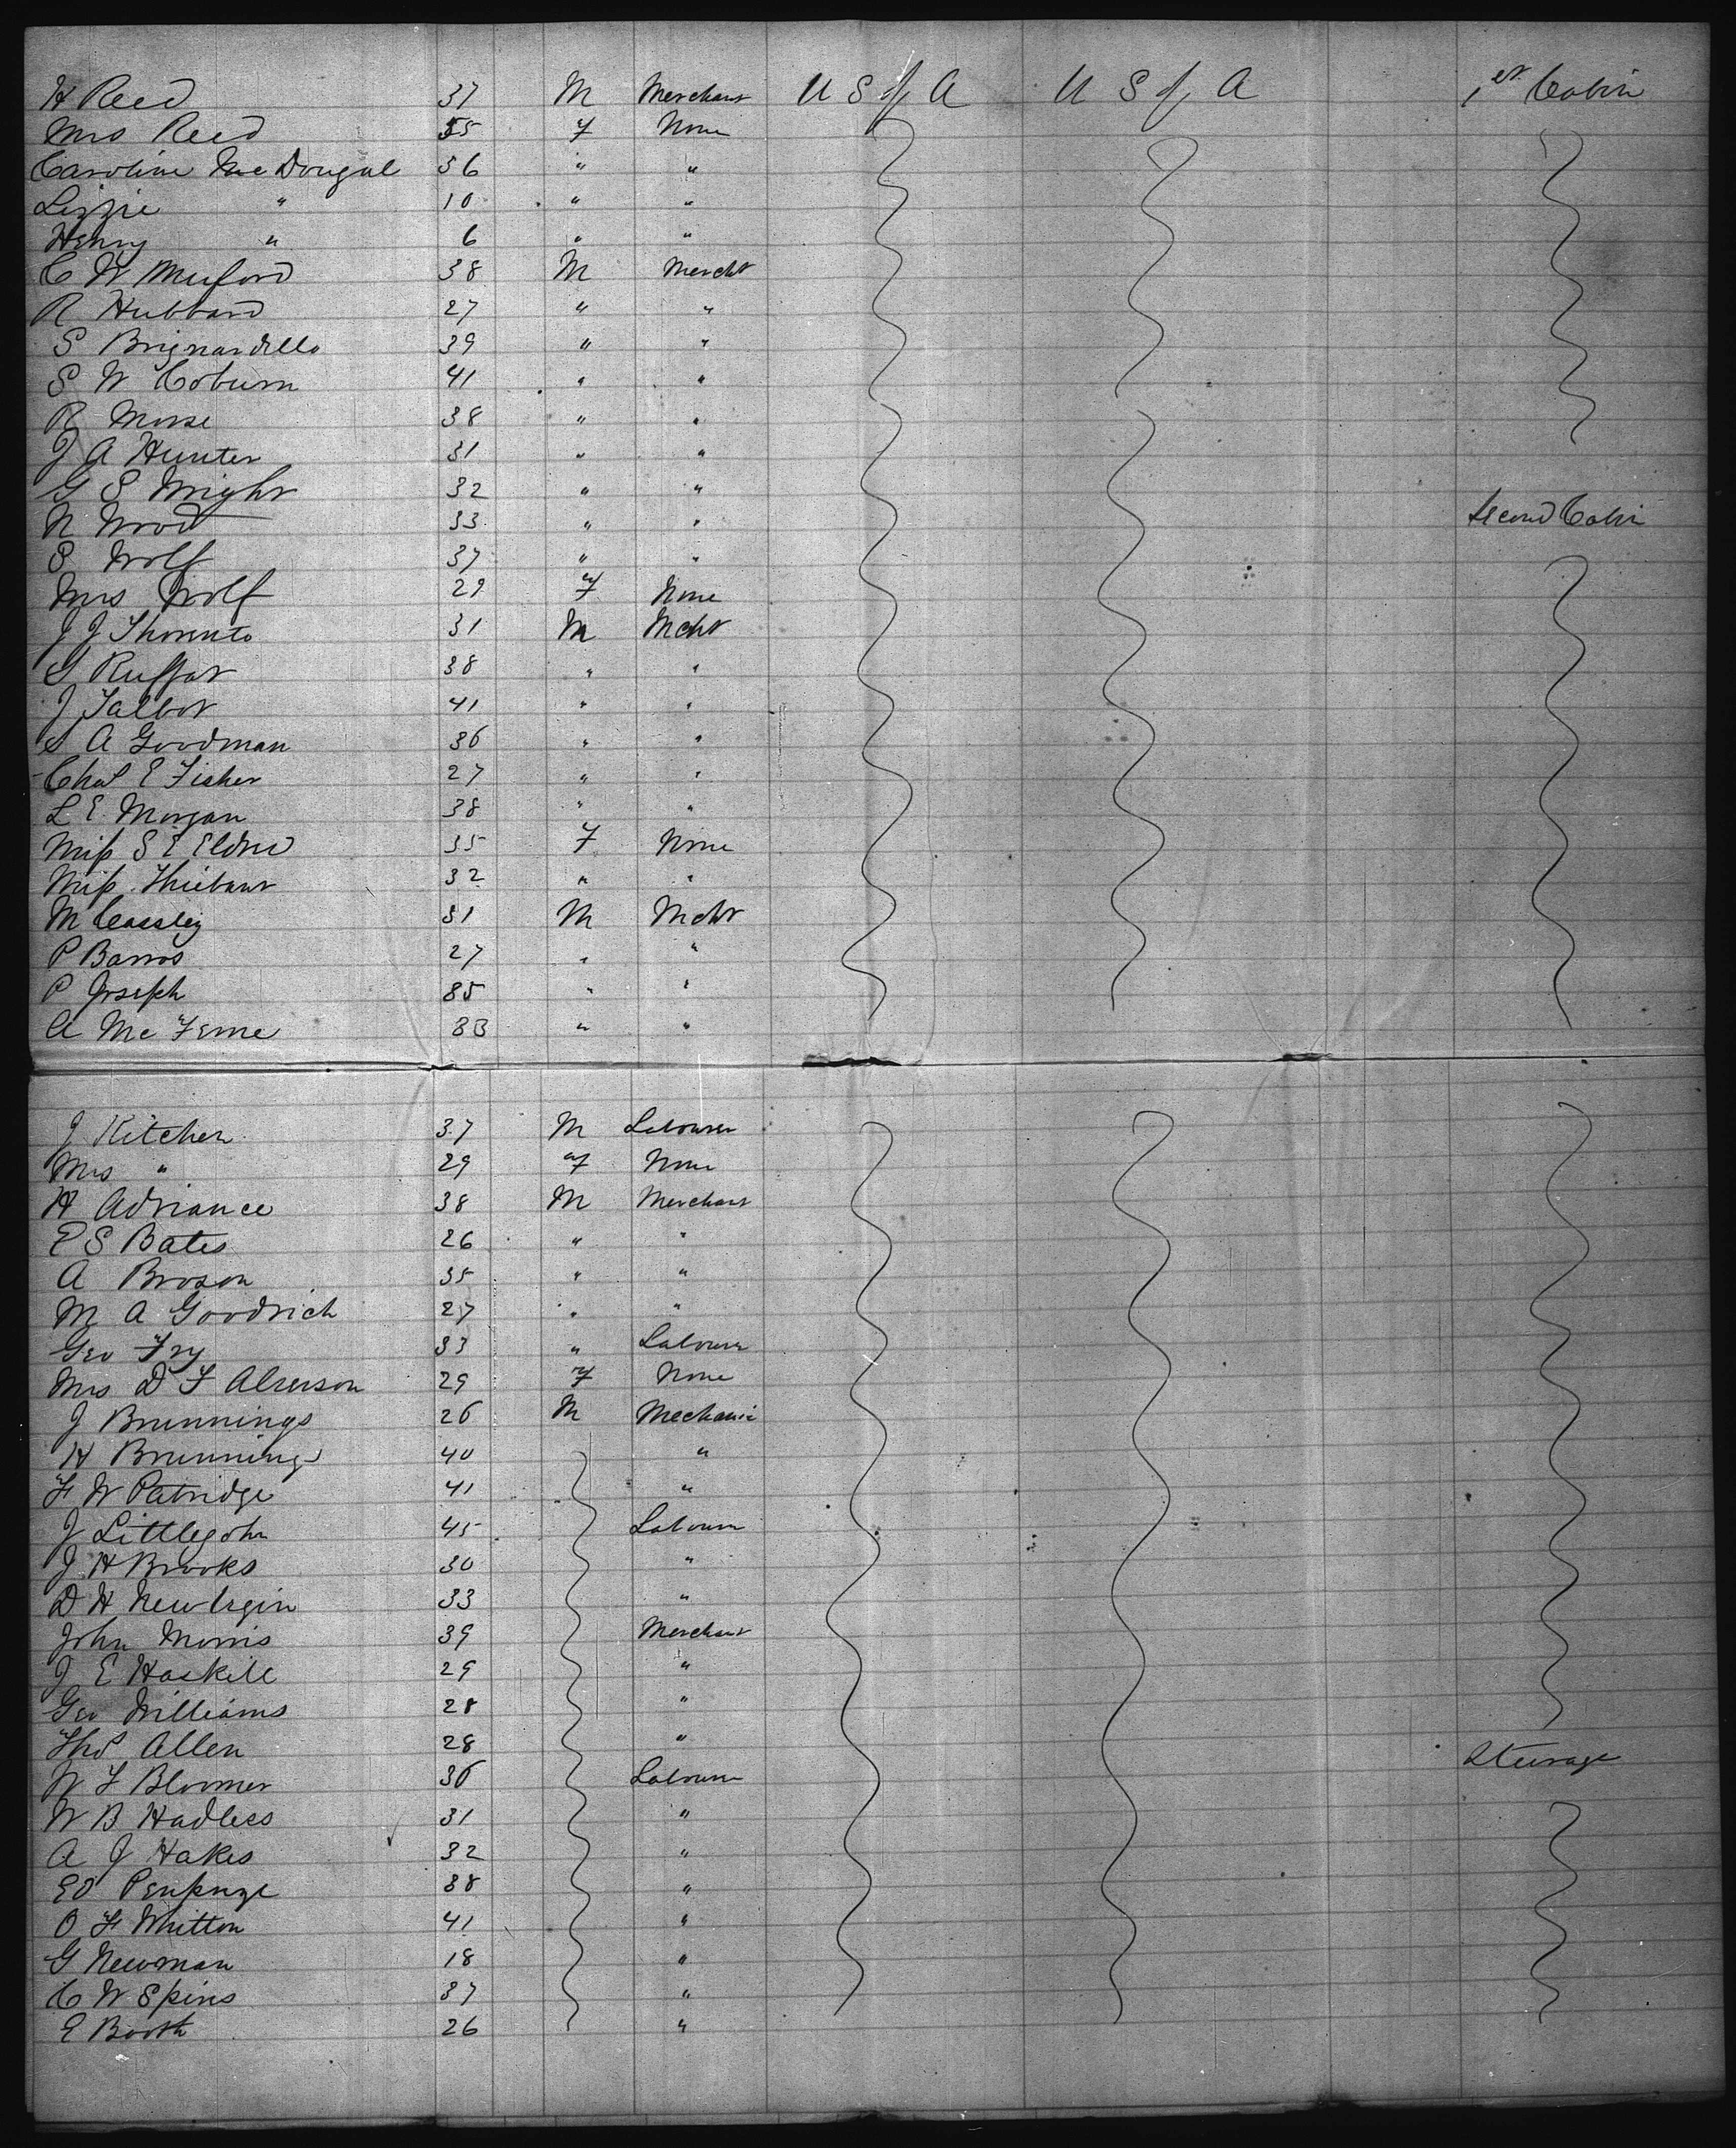 H Reed 37 M Merchant U S of A U S of A 1st Cabin
Mrs Reed 35 F None
Caroline McDougal 36 " "
Lizzie " 10 " "
Henry " 6 " "
C W Muford 38 M Mercht
R Hubbard 27 " "
S Brignardello 39 " "
S W Coburn 41 " "
R Morse 38 " "
J A Hunter 31 " "
G S Wright 32 " "
N Wood 33 " " Second Cabin
S Wolf 37 " "
Mrs Wolf 29 F None
J J Thorento 31 M Mcht
S Ruffat 38 " "
J Talbot 41 " "
S A Goodman 36 " "
Chas E Fisher 27 " "
L E Morgan 38 " "
Miss S E Eldred 35 F None
Miss Thiebaut 32 " "
M Cassley 31 M Mcht
P Barros 27 " "
P Joseph 35 " "
A Mc Ferne 33 " "
J Kitchen 37 M Labourer
Mrs " 29 F None
H Adriance 38 M Merchant
E S Bates 26 " "
A Broson 35 " "
M A Goodrich 27 " "
Geo Fry 33 " Labourer
Mrs D F 29 F None
J Brunnings 26 M Mechanic
H Brunnings 40 "
F W Patridge 41 "
J Littlejohn 45 Labourer
J H Brooks 30 "
D H 33 "
John Morris 39 Merchant
J E Haskill 29 "
Geo Williams 28 "
Thos Allen 28 "
W F Bloomer 36 Labourer Steerage
W B Hadless 31 "
A J Hakes 32 "
Ed 38 "
O F Whitton 41 "
G Newman 18 "
C W Spins 37 "
E Booth 26 "